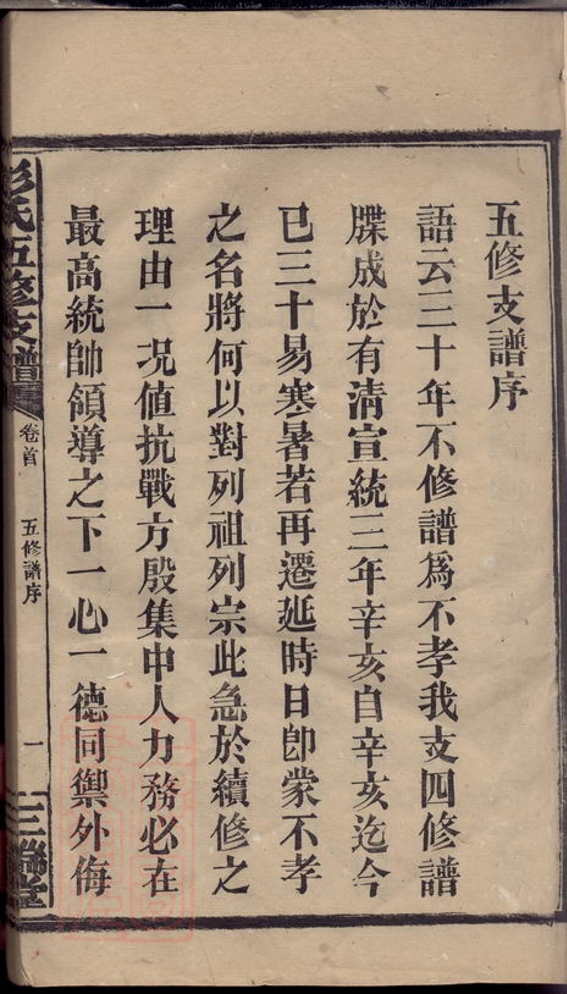 五修支譜序
語云三十年不修譜爲不孝我支四修譜
牒成於有清宣統三年辛亥自辛亥迄今
已三十易寒暑若再遷延時日卽蒙不孝
之名將何以對列祖列宗此急於續修之
理由一况值抗戰方殷集中人力務必在
最高統帥領導之下一心一德同禦外侮
彭氏五修支譜
卷首
五修譜序
一
三瑞堂